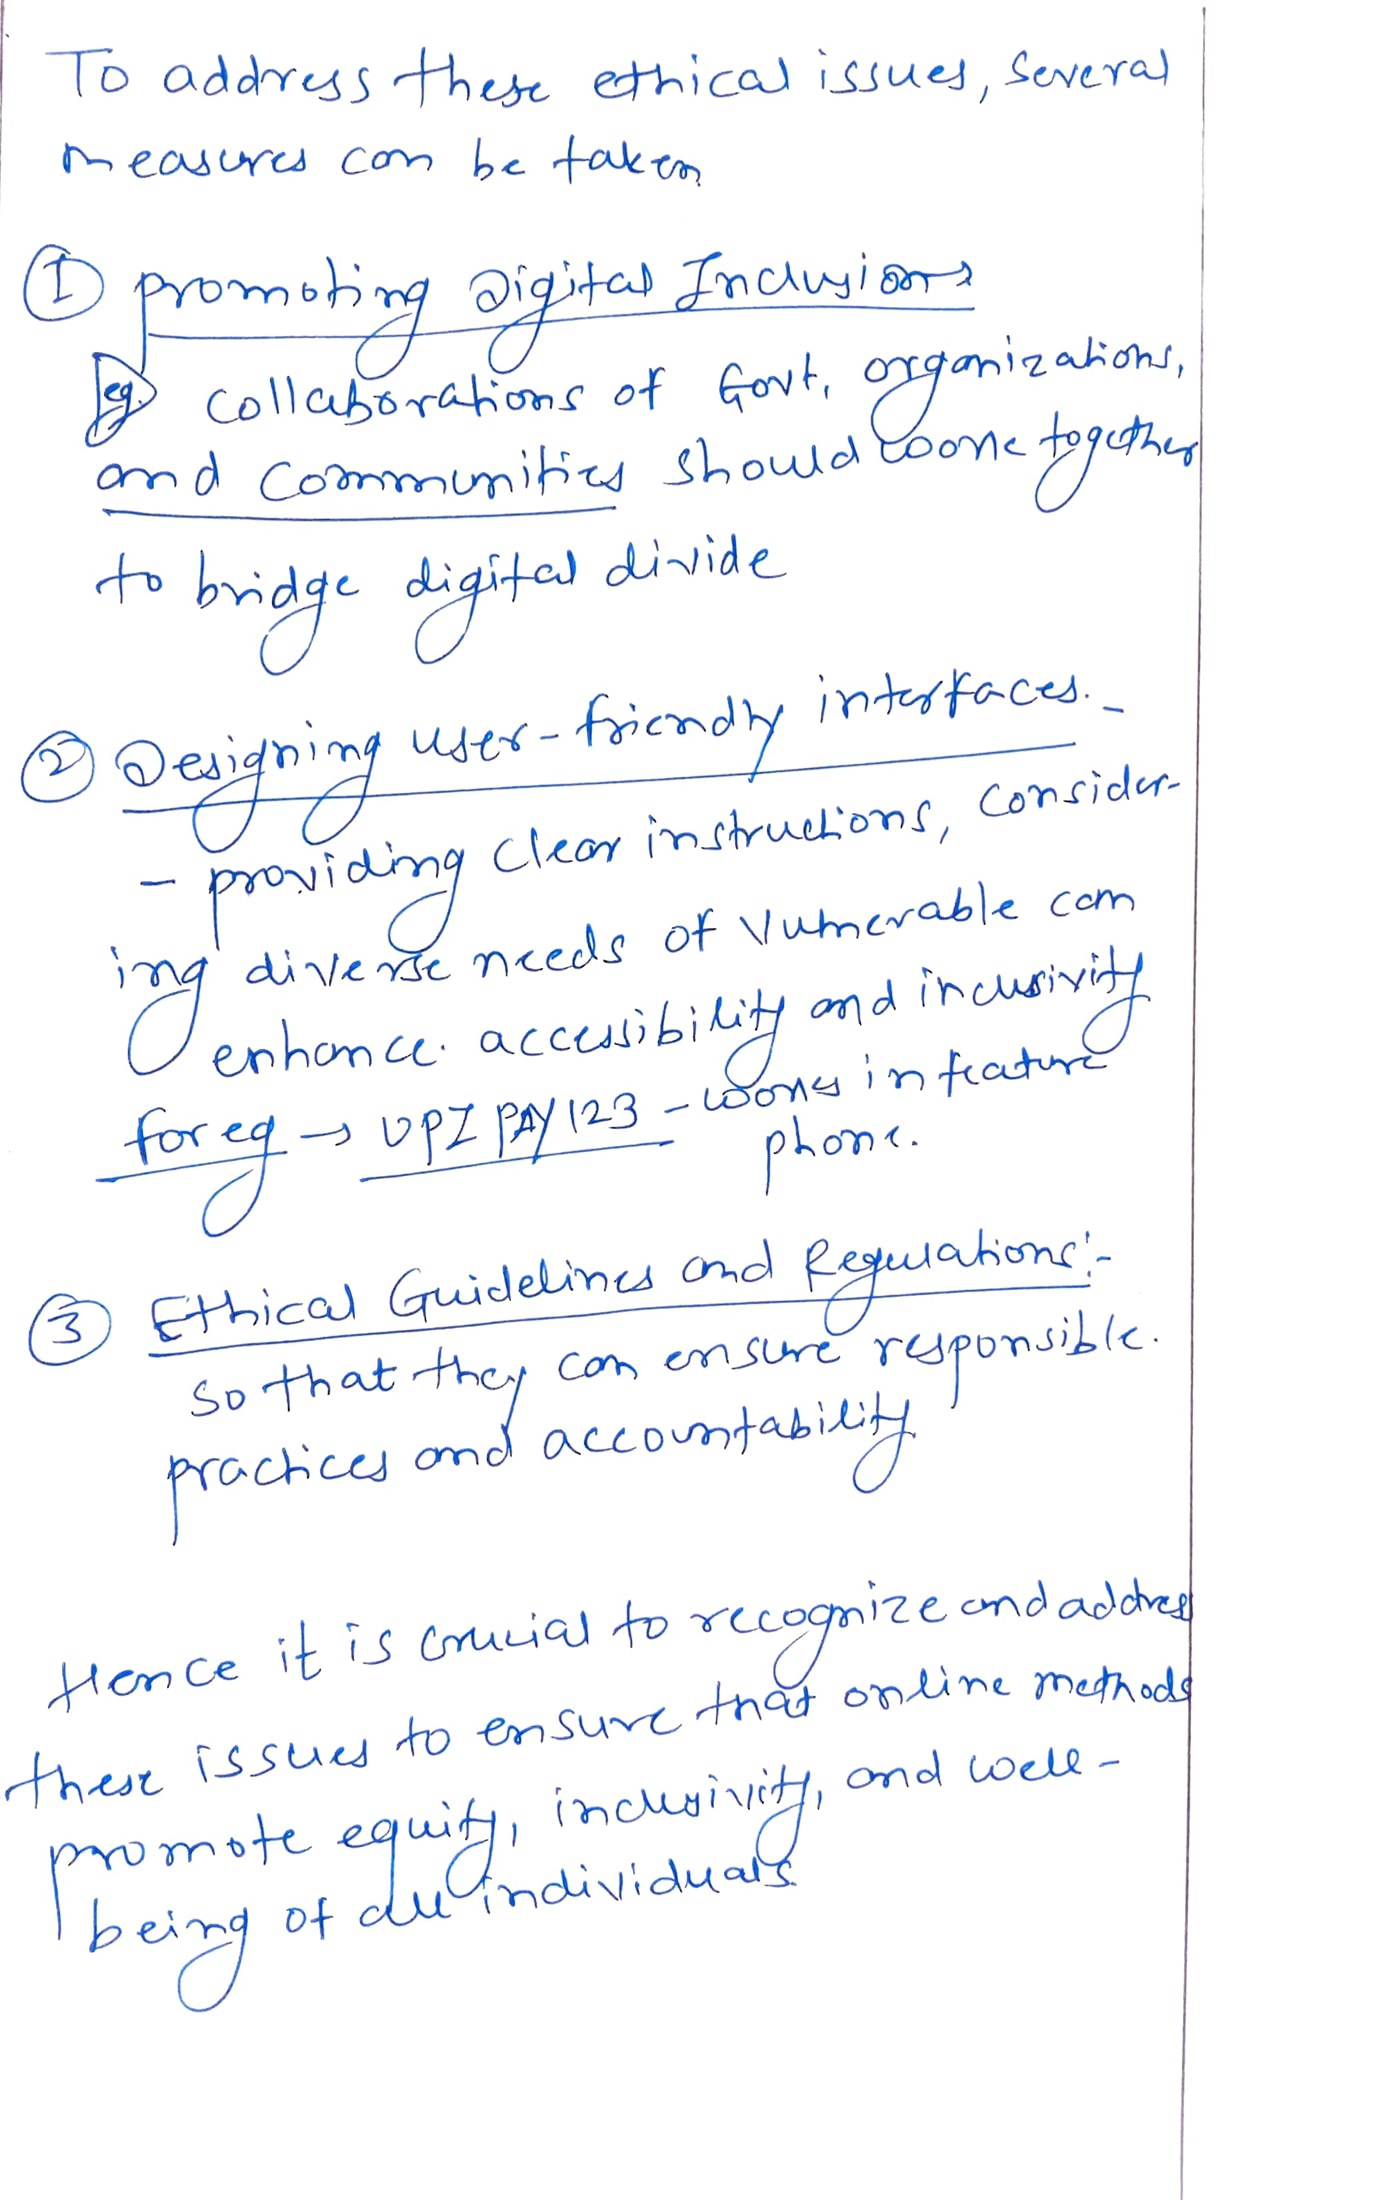 To address these ethical issues, several
measures can be taken
① promoting Digital Inclusions
eg. collaborations of Govt, organizations,
and communities should work together
to bridge digital divide
② Designing user-friendly interfaces.-
- providing clear instructions, consider-
ing diverse needs of vulnerable can
enhance accessibility and inclusivity
for eg → UPI PAY 123 - works in feature
phone.
③ Ethical Guidelines and Regulations:-
so that they can ensure responsible.
practices and accountability
Hence it is crucial to recognize and address
these issues to ensure that online methods
promote equity, inclusivity, and well-
being of all individuals